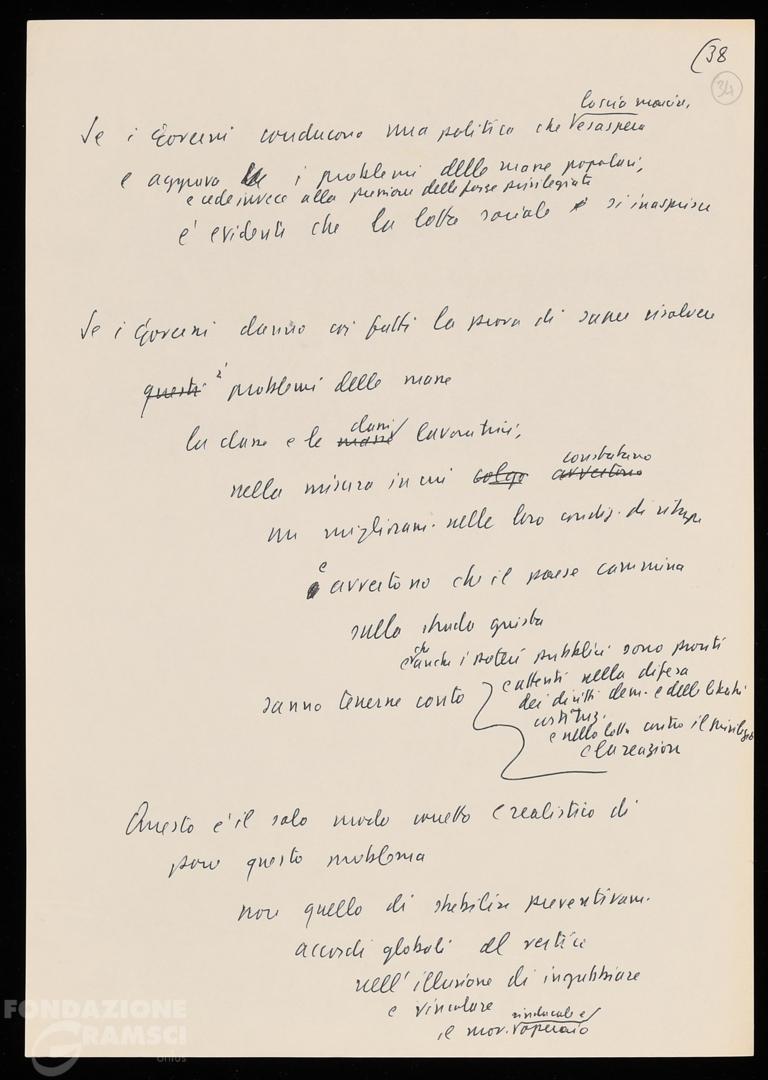 (38
34
lascia marcire,
Se i Governi conducono una politica che esaspera
e aggrava le i problemi delle masse popolari,
e cede invece alla pressione delle forze privilegiate
è evidente che la lotta sociale si inasprisce
Se i Governi danno coi fatti la prova di saper risolvere
questi i problemi delle masse
la classe e le masse classi lavoratrici,
nella misura in cui colgo avvertono constatano
un miglioram. nelle loro condiz. di vita
e avvertono che il paese cammina
sulla strada giusta
e che anche i poteri pubblici sono pronti
e attenti nella difesa
sanno tenerne conto
dei diritti dem. e delle libertà
costituz.
e nella lotta contro il privilegio
e la reazione
Questo è il solo modo corretto e realistico di
porre questo problema
non quello di stabilire preventivam.
accordi globali al vertice
nell'illusione di ingabbiare
e vincolare
il mov. sindacale e operaio
FONDAZIONE
GRAMSCI
onlus